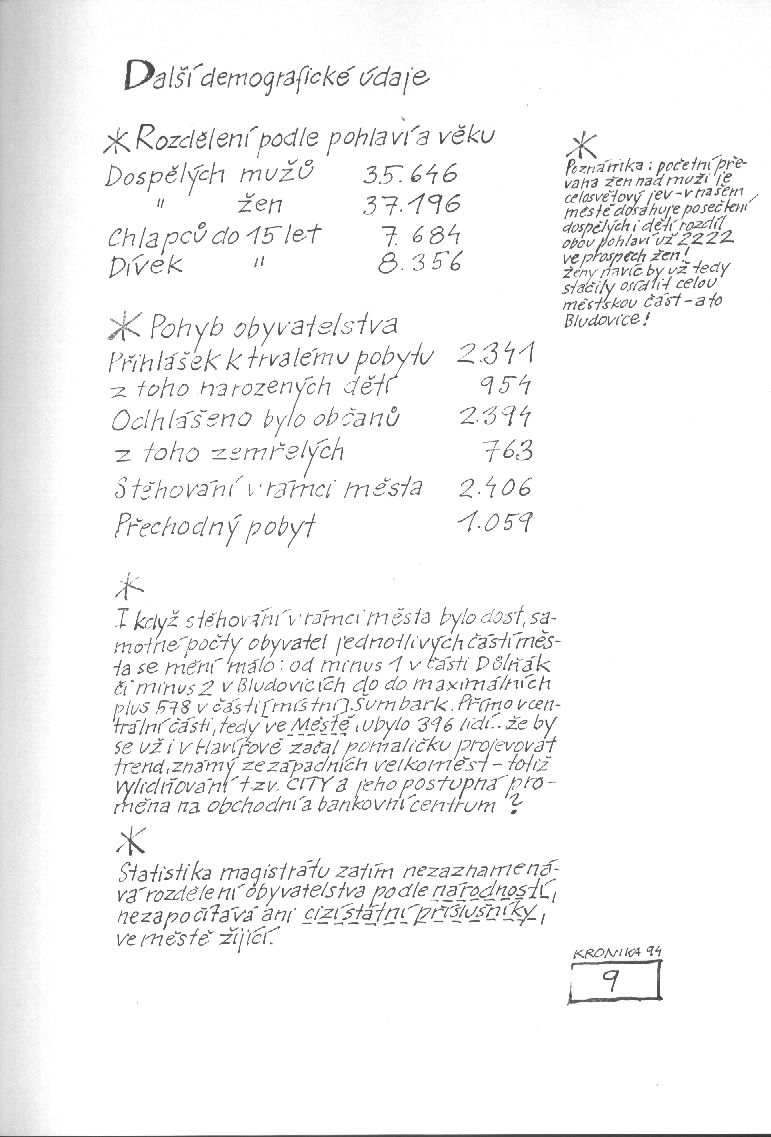 Další demografické údaje
* Rozdělení podle pohlaví a věku
Dospělých mužů 35.646
" žen 37.196
Chlapců do 15 let 7.684
Dívek " 8.356
*
Poznámka: početní pře-
vaha žen nad muži je
celosvětový jev - v našem
městě dosahuje po sečtení
dospělých i dětí rozdíl
obou pohlaví už 2222
ve prospěch žen!
Ženy navíc by už tedy
stačily osídlit celou
městskou část - a to
Bludovice!
* Pohyb obyvatelstva
Přihlášek k trvalému pobytu 2.341
z toho narozených dětí 954
Odhlášeno bylo občanů 2.394
z toho zemřelých 763
Stěhování v rámci města 2.406
Přechodný pobyt 1.059
*
I když stěhování v rámci města bylo dost, sa-
motné počty obyvatel jednotlivých částí měs-
ta se mění málo: od minus 1 v části Dělňák
či minus 2 v Bludovicích do do maximálních
plus 578 v části [místní] Šumbark. Přímo v cen-
trální části, tedy ve Městě, ubylo 396 lidí. že by
se už i v Havířově začal pomaličku projevovat
trend, známý ze západních velkoměst - totiž
vylidňování t.zv. CITY a jeho postupná pro-
měna na obchodní a bankovní centrum ?
*
Statistika magistrátu zatím nezaznamená-
vá rozdělení obyvatelstva podle národností,
nezapočítává ani cizí státní příslušníky,
ve městě žijící.
KRONIKA 94
9